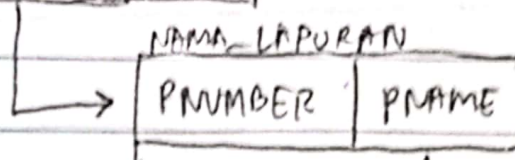 NAMA_LAPURAN
PNUMBER PNAME